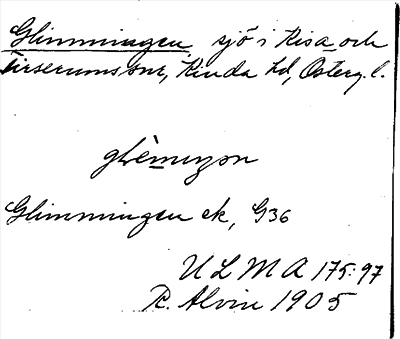 Glimmingen, sjö i Kisa och
Tirserums snr, Kinda hd, Österg. l.
glèmmŋən
Glimmingen ek, G36
ULMA 175:97
R. Alvin 1905